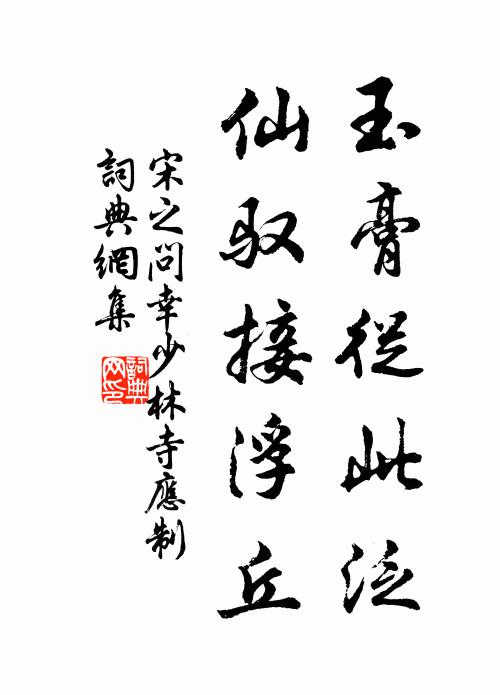 玉膏從此泛
仙馭接浮丘
宋之問幸少林寺應制
詞典網集
詞典
网印